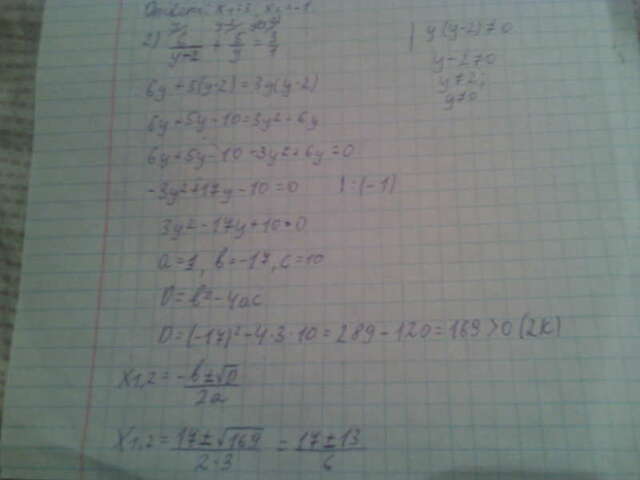 Ответ: x₁=3, x₂=-1
2) 6/(y-2) + 5/y = 3/1
y(y-2)≠0
y-2≠0
y≠2;
y≠0
6y+5(y-2)=3y(y-2)
6y+5y-10=3y²-6y
6y+5y-10-3y²+6y=0
-3y²+17y-10=0 |:(-1)
3y²-17y+10=0
a=3, b=-17, c=10
D=b²-4ac
D=(-17)²-4·3·10=289-120=169>0 (2к)
x₁,₂=(-b±√D)/2a
x₁,₂=(17±√169)/(2·3)=(17±13)/6